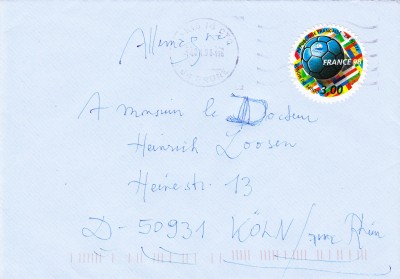 Allemagne
FRANCE 98
3,00
A monsieur le Docteur
Heinrich Loosen
Heinestr. 13
D-50931 KÖLN / Rhin